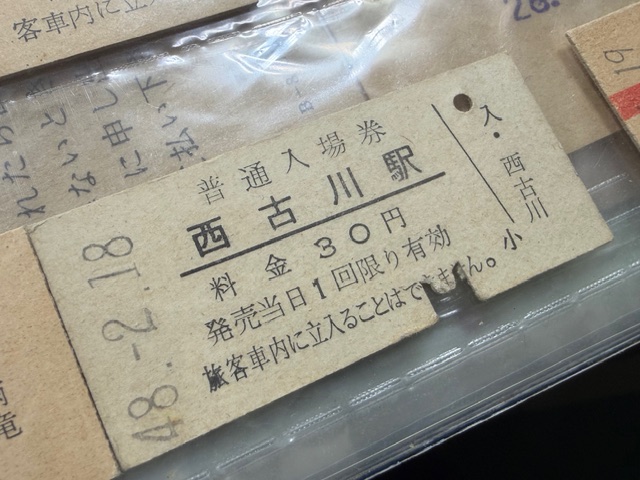 客車内に立入
れたら
ないと
に申し
払い下
20.
19
48.-2.18
普通入場券
西古川駅
料金30円
発売当日1回限り有効
旅客車内に立入ることはできません。
入・西古川
小
竜